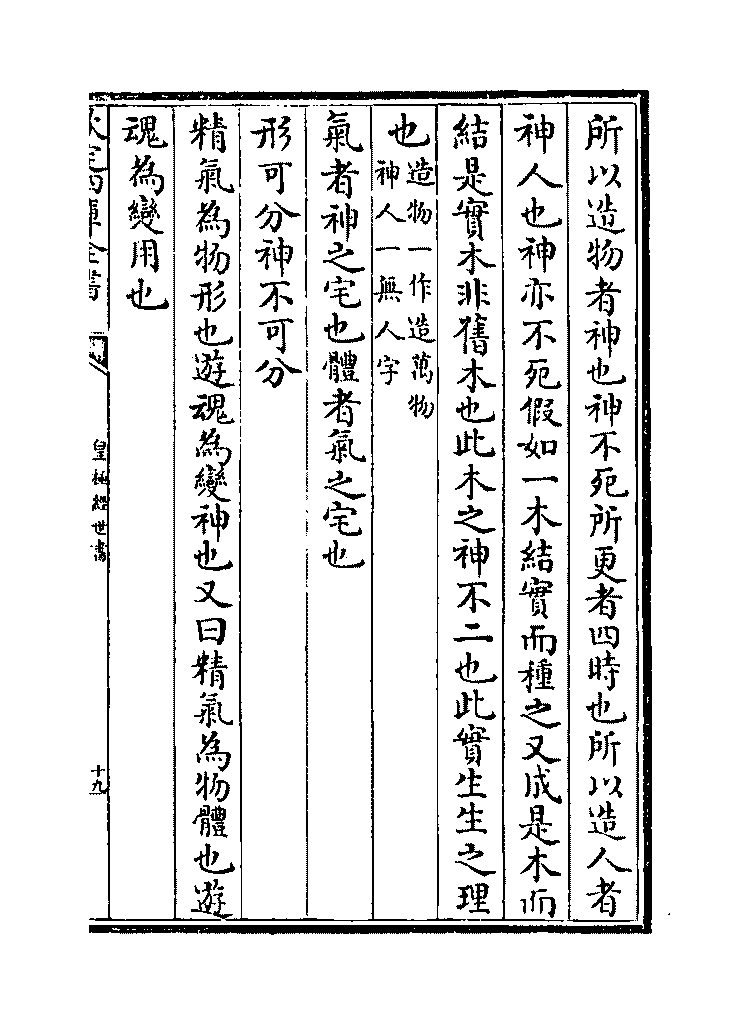 所以造物者神也神不死所更者四時也所以造人者
神人也神亦不死假如一木結實而種之又成是木而
結是實木非舊木也此木之神不二也此實生生之理
也造物一作造萬物神人一無人字
氣者神之宅也體者氣之宅也
形可分神不可分
精氣為物形也遊魂為變神也又曰精氣為物體也遊
魂為變用也
欽定四庫全書
皇極經世書
十九